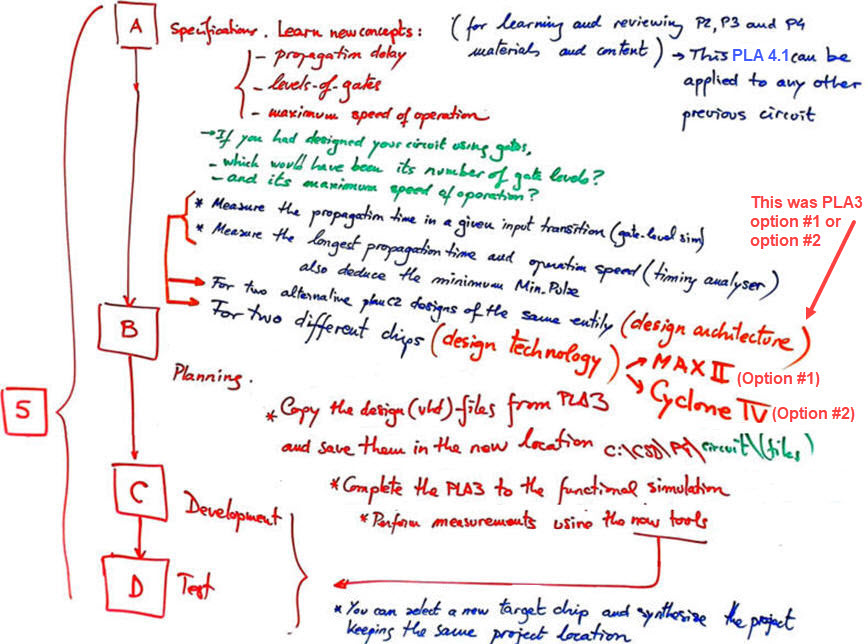 A Specifications. Learn new concepts:
- propagation delay
- levels-of-gates
- maximum speed of operation
(for learning and reviewing P2, P3 and P4
materials and content) → This PLA 4.1 can be
applied to any other
previous circuit
→ If you had designed your circuit using gates,
- which would have been its number of gate levels?
- and its maximum speed of operation?
This was PLA3
option #1 or
option #2
* Measure the propagation time in a given input transition (gate-level sim)
* Measure the longest propagation time and operation speed (timing analyser)
also deduce the minimum Min.Pulse
→ For two alternative planC2 designs of the same entity (design architecture)
→ For two different chips (design technology) → MAX II (Option #1)
→ Cyclone IV (Option #2)
B
Planning.
* Copy the design (vhd)-files from PLA3
and save them in the new location C:\CSD\P4\circuit\(files)
5
* Complete the PLA3 to the functional simulation
C Development
* Perform measurements using the new tools
D Test
* You can select a new target chip and synthesize the project
keeping the same project location